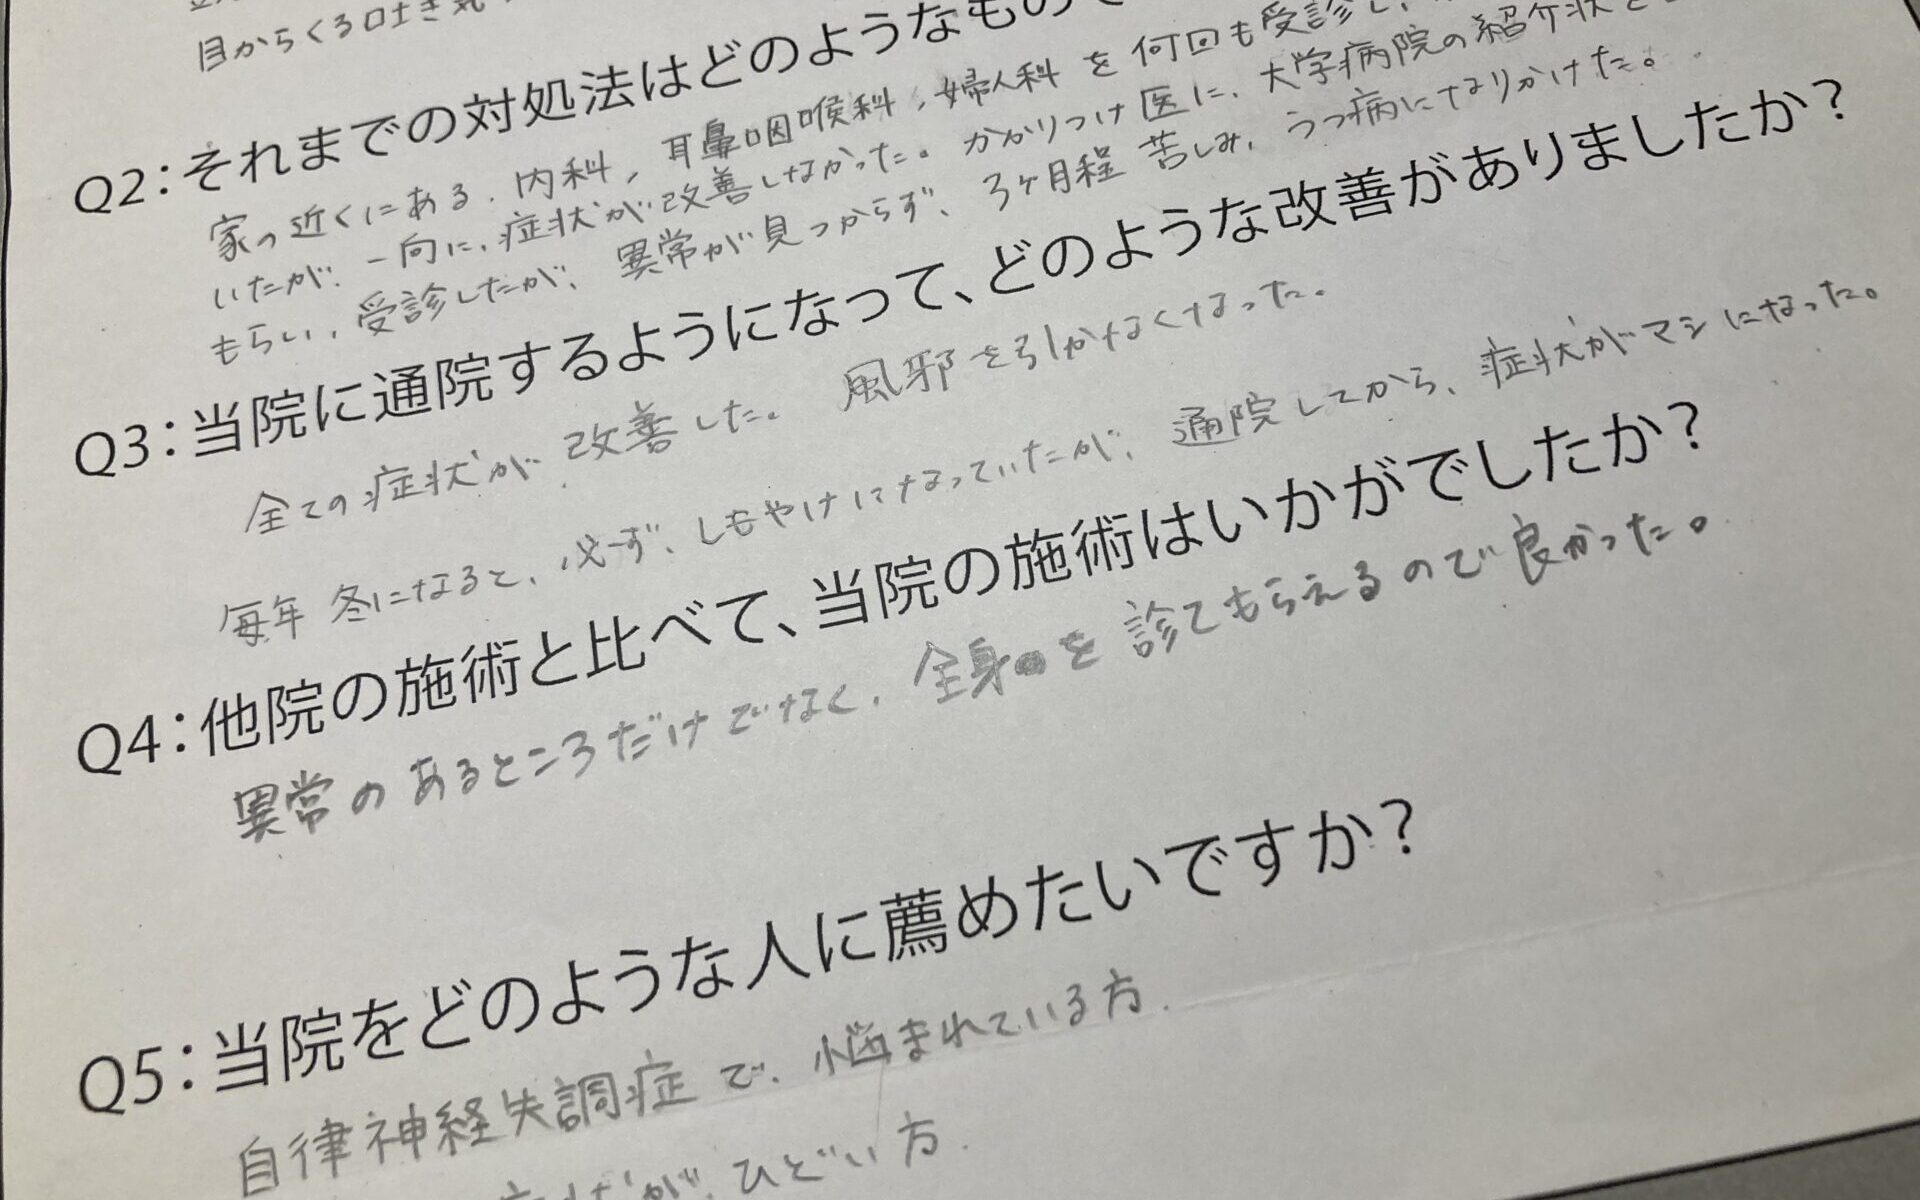 目からくる吐き気
Q2：それまでの対処法はどのようなもので
家の近くにある、内科、耳鼻咽喉科、婦人科を何回も受診し、
いたが、一向に、症状が改善しなかった。かかりつけ医に、大学病院の紹介状を
もらい、受診したが、異常が見つからず、3ヶ月程 苦しみ、うつ病になりかけた。
Q3：当院に通院するようになって、どのような改善がありましたか？
全ての症状が 改善した。 風邪を引かなくなった。
毎年 冬になると、必ず、しもやけになっていたが、通院してから、症状がマシになった。
Q4：他院の施術と比べて、当院の施術はいかがでしたか？
異常のあるところだけでなく、全身を診てもらえるので良かった。
Q5：当院をどのような人に薦めたいですか？
自律神経失調症で、悩まれている方、
症状が、ひどい方、